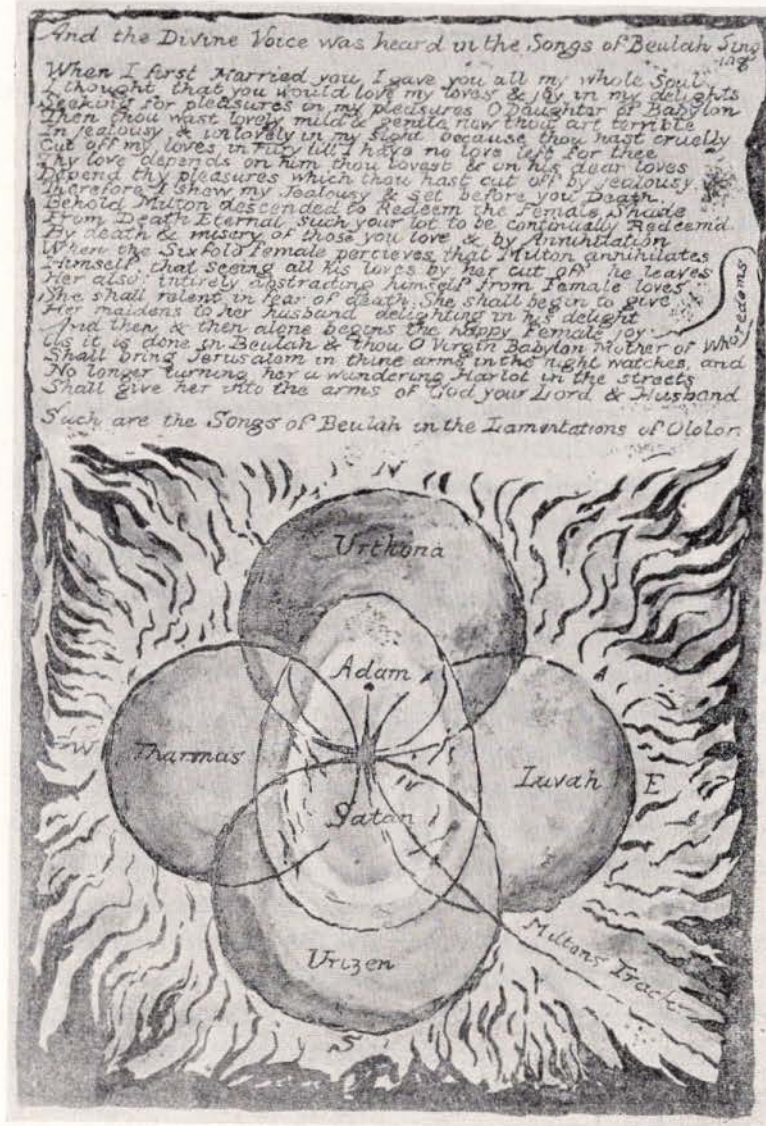 And the Divine Voice was heard in the Songs of Beulah Sing
ing
When I first Married you, I gave you all my whole Soul
I thought that you would love my loves & joy in my delights
Seeking for pleasures in my pleasures O Daughter of Babylon
Then thou wast lovely, mild & gentle, now thou art terrible
In jealousy & unlovely in my sight, because thou hast cruelly
Cut off my loves in fury till I have no love left for thee
Thy love depends on him thou lovest & on his dear loves
Depend thy pleasures which thou hast cut off by jealousy
Therefore I shew my Jealousy & set before you Death.
Behold Milton descended to Redeem the Female Shade
From Death Eternal; such your lot, to be continually Redeem'd
By death & misery of those you love & by Annihilation
When the Sixfold Female percieves that Milton annihilates
Himself: that seeing all his loves by her cut off: he leaves
Her also: intirely abstracting himself from Female loves
She shall relent in fear of death: She shall begin to give
Her maidens to her husband: delighting in his delight
And then & then alone begins the happy Female joy
As it is done in Beulah, & thou O Virgin Babylon Mother of Wh
oredoms
Shall bring Jerusalem in thine arms in the night watches; and
No longer turning her a wandering Harlot in the streets
Shall give her into the arms of God your Lord & Husband.
Such are the Songs of Beulah in the Lamentations of Ololon
N
Urthona
Adam
W
Tharmas
Luvah
E
Satan
Urizen
Miltons Track
S